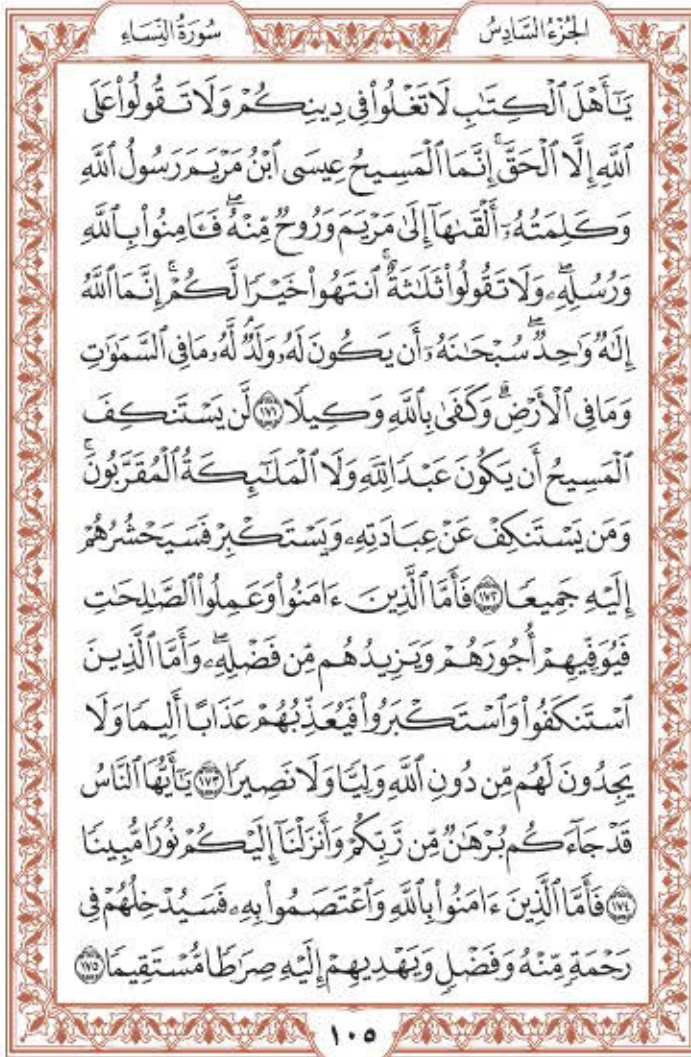 سُورَةُ النِّسَاءِ
الجُزْءُ السَّادِسُ
يَٰٓأَهۡلَ ٱلۡكِتَٰبِ لَا تَغۡلُواْ فِي دِينِكُمۡ وَلَا تَقُولُواْ عَلَى
ٱللَّهِ إِلَّا ٱلۡحَقَّۚ إِنَّمَا ٱلۡمَسِيحُ عِيسَى ٱبۡنُ مَرۡيَمَ رَسُولُ ٱللَّهِ
وَكَلِمَتُهُۥٓ أَلۡقَىٰهَآ إِلَىٰ مَرۡيَمَ وَرُوحٞ مِّنۡهُۖ فَـَٔامِنُواْ بِٱللَّهِ
وَرُسُلِهِۦۖ وَلَا تَقُولُواْ ثَلَٰثَةٌۚ ٱنتَهُواْ خَيۡرٗا لَّكُمۡۚ إِنَّمَا ٱللَّهُ
إِلَٰهٞ وَٰحِدٞۖ سُبۡحَٰنَهُۥٓ أَن يَكُونَ لَهُۥ وَلَدٞۘ لَّهُۥ مَا فِي ٱلسَّمَٰوَٰتِ
وَمَا فِي ٱلۡأَرۡضِۗ وَكَفَىٰ بِٱللَّهِ وَكِيلٗا ١٧١ لَّن يَسۡتَنكِفَ
ٱلۡمَسِيحُ أَن يَكُونَ عَبۡدٗا لِّلَّهِ وَلَا ٱلۡمَلَٰٓئِكَةُ ٱلۡمُقَرَّبُونَۚ
وَمَن يَسۡتَنكِفۡ عَنۡ عِبَادَتِهِۦ وَيَسۡتَكۡبِرۡ فَسَيَحۡشُرُهُمۡ
إِلَيۡهِ جَمِيعٗا ١٧٢ فَأَمَّا ٱلَّذِينَ ءَامَنُواْ وَعَمِلُواْ ٱلصَّٰلِحَٰتِ
فَيُوَفِّيهِمۡ أُجُورَهُمۡ وَيَزِيدُهُم مِّن فَضۡلِهِۦۖ وَأَمَّا ٱلَّذِينَ
ٱسۡتَنكَفُواْ وَٱسۡتَكۡبَرُواْ فَيُعَذِّبُهُمۡ عَذَابًا أَلِيمٗا وَلَا
يَجِدُونَ لَهُم مِّن دُونِ ٱللَّهِ وَلِيّٗا وَلَا نَصِيرٗا ١٧٣ يَٰٓأَيُّهَا ٱلنَّاسُ
قَدۡ جَآءَكُم بُرۡهَٰنٞ مِّن رَّبِّكُمۡ وَأَنزَلۡنَآ إِلَيۡكُمۡ نُورٗا مُّبِينٗا
١٧٤ فَأَمَّا ٱلَّذِينَ ءَامَنُواْ بِٱللَّهِ وَٱعۡتَصَمُواْ بِهِۦ فَسَيُدۡخِلُهُمۡ فِي
رَحۡمَةٖ مِّنۡهُ وَفَضۡلٖ وَيَهۡدِيهِمۡ إِلَيۡهِ صِرَٰطٗا مُّسۡتَقِيمٗا ١٧٥
١٠٥